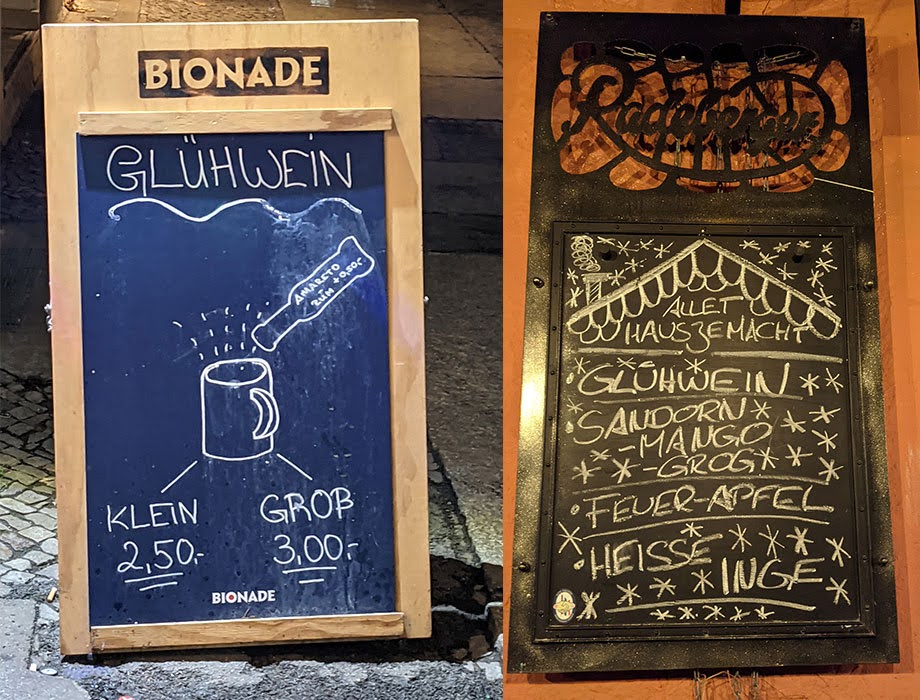 BIONADE
GLÜHWEIN
AMARETO
RÜM +0,50€
KLEIN
2,50,-
GROß
3,00,-
BIONADE
Radeberger
ALLET
HAUSGEMACHT
• GLÜHWEIN
• SANDORN
-MANGO
-GROG
• FEUER-APFEL
• HEISSE
INGE